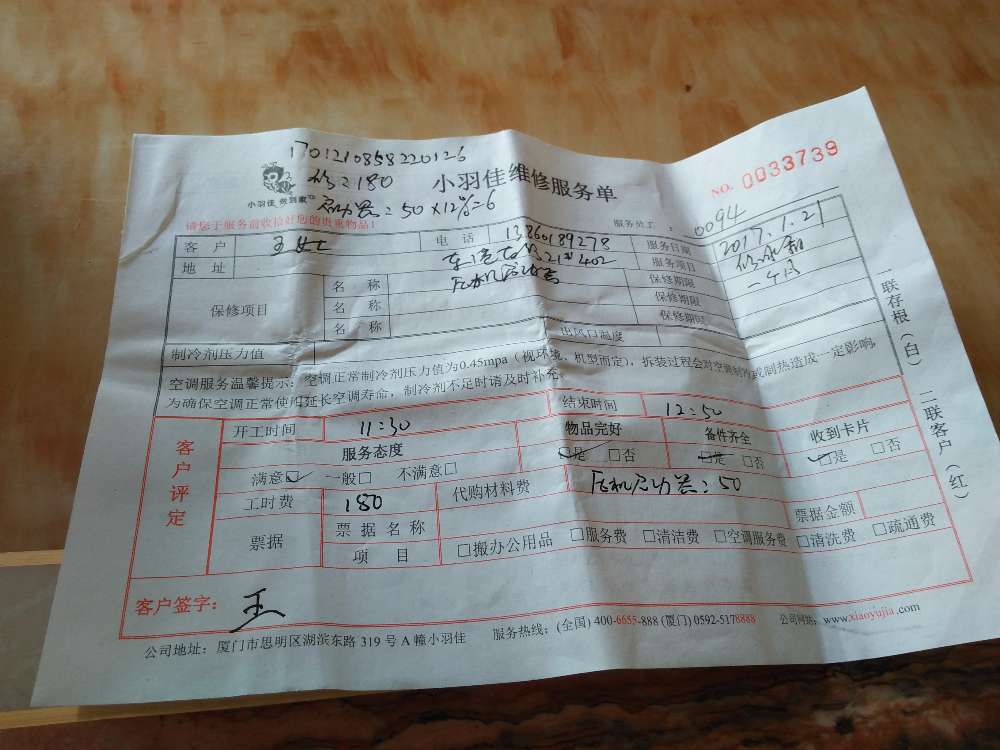 1701210858220126
修:180
小羽佳维修服务单
NO. 0033739
小羽佳
启动器:50×12%=6
请您于服务前收拾好您的贵重物品!
服务员工: 0094
客户 王女士 电话 13860189278 服务日期 2017.1.21
地址 服务项目
保修项目 名称 压机启动器 保修期限 一个月
名称 保修期限
名称 保修期限
制冷剂压力值 出风口温度
空调服务温馨提示:空调正常制冷剂压力值为0.45mpa(视环境、机型而定),拆装过程会对空调制冷或制热造成一定影响,
为确保空调正常使用延长空调寿命,制冷剂不足时请及时补充。
一联存根(白) 二联客户(红)
客户评定
开工时间 11:30 结束时间 12:50
服务态度 物品完好 备件齐全 收到卡片
满意□ 一般□ 不满意□ □是 □否 □是 □否 □是 □否
工时费 180 代购材料费 压机启动器:50
票据 票据名称 票据金额
项目 □搬办公用品 □服务费 □清洁费 □空调服务费 □清洗费 □疏通费
客户签字: 王
公司地址:厦门市思明区湖滨东路319号A幢小羽佳 服务热线:(全国)400-6655-888 (厦门)0592-5178888 公司网站:www.xiaoyujia.com